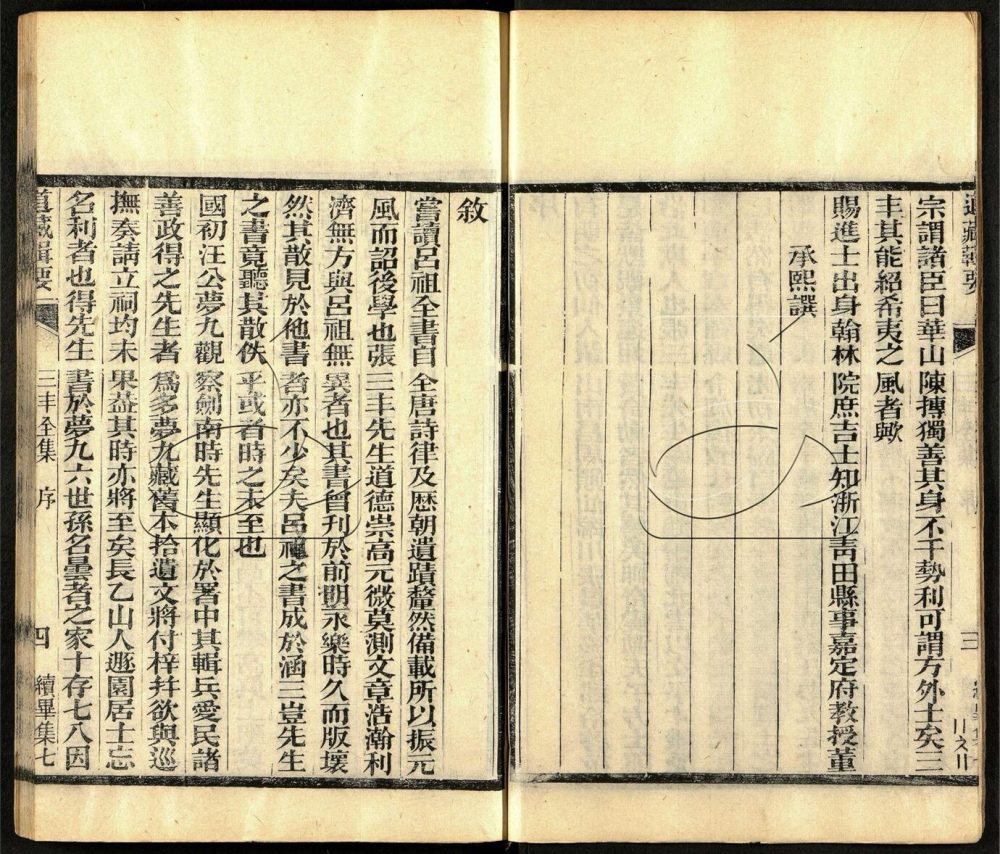 道藏輯要
三
宗謂諸臣曰華山陳摶獨善其身不干勢利可謂方外士矣三
丰其能紹希夷之風者歟
賜進士出身翰林院庶吉士知浙江靑田縣事嘉定府教授董
承熙譔
敘
嘗讀呂祖全書自全唐詩律及歴朝遺蹟釐然備載所以振元
風而詔後學也張三丰先生道德崇高元微莫測文章浩瀚利
濟無方與呂祖無異者也其書曾刊於前明永樂時久而版壞
然其散見於他書者亦不少矣夫呂祖之書成於涵三豈先生
之書竟聽其散佚乎或者時之未至也
國初汪公夢九觀察劍南時先生顯化於署中其輯兵愛民諸
善政得之先生者爲多夢九藏舊本拾遺文將付梓幷欲與巡
撫奏請立祠均未果葢其時亦將至矣長乙山人遯園居士忘
名利者也得先生書於夢九六世孫名曇者之家十存七八因
道藏輯要
三丰全集 序
四
續畢集七